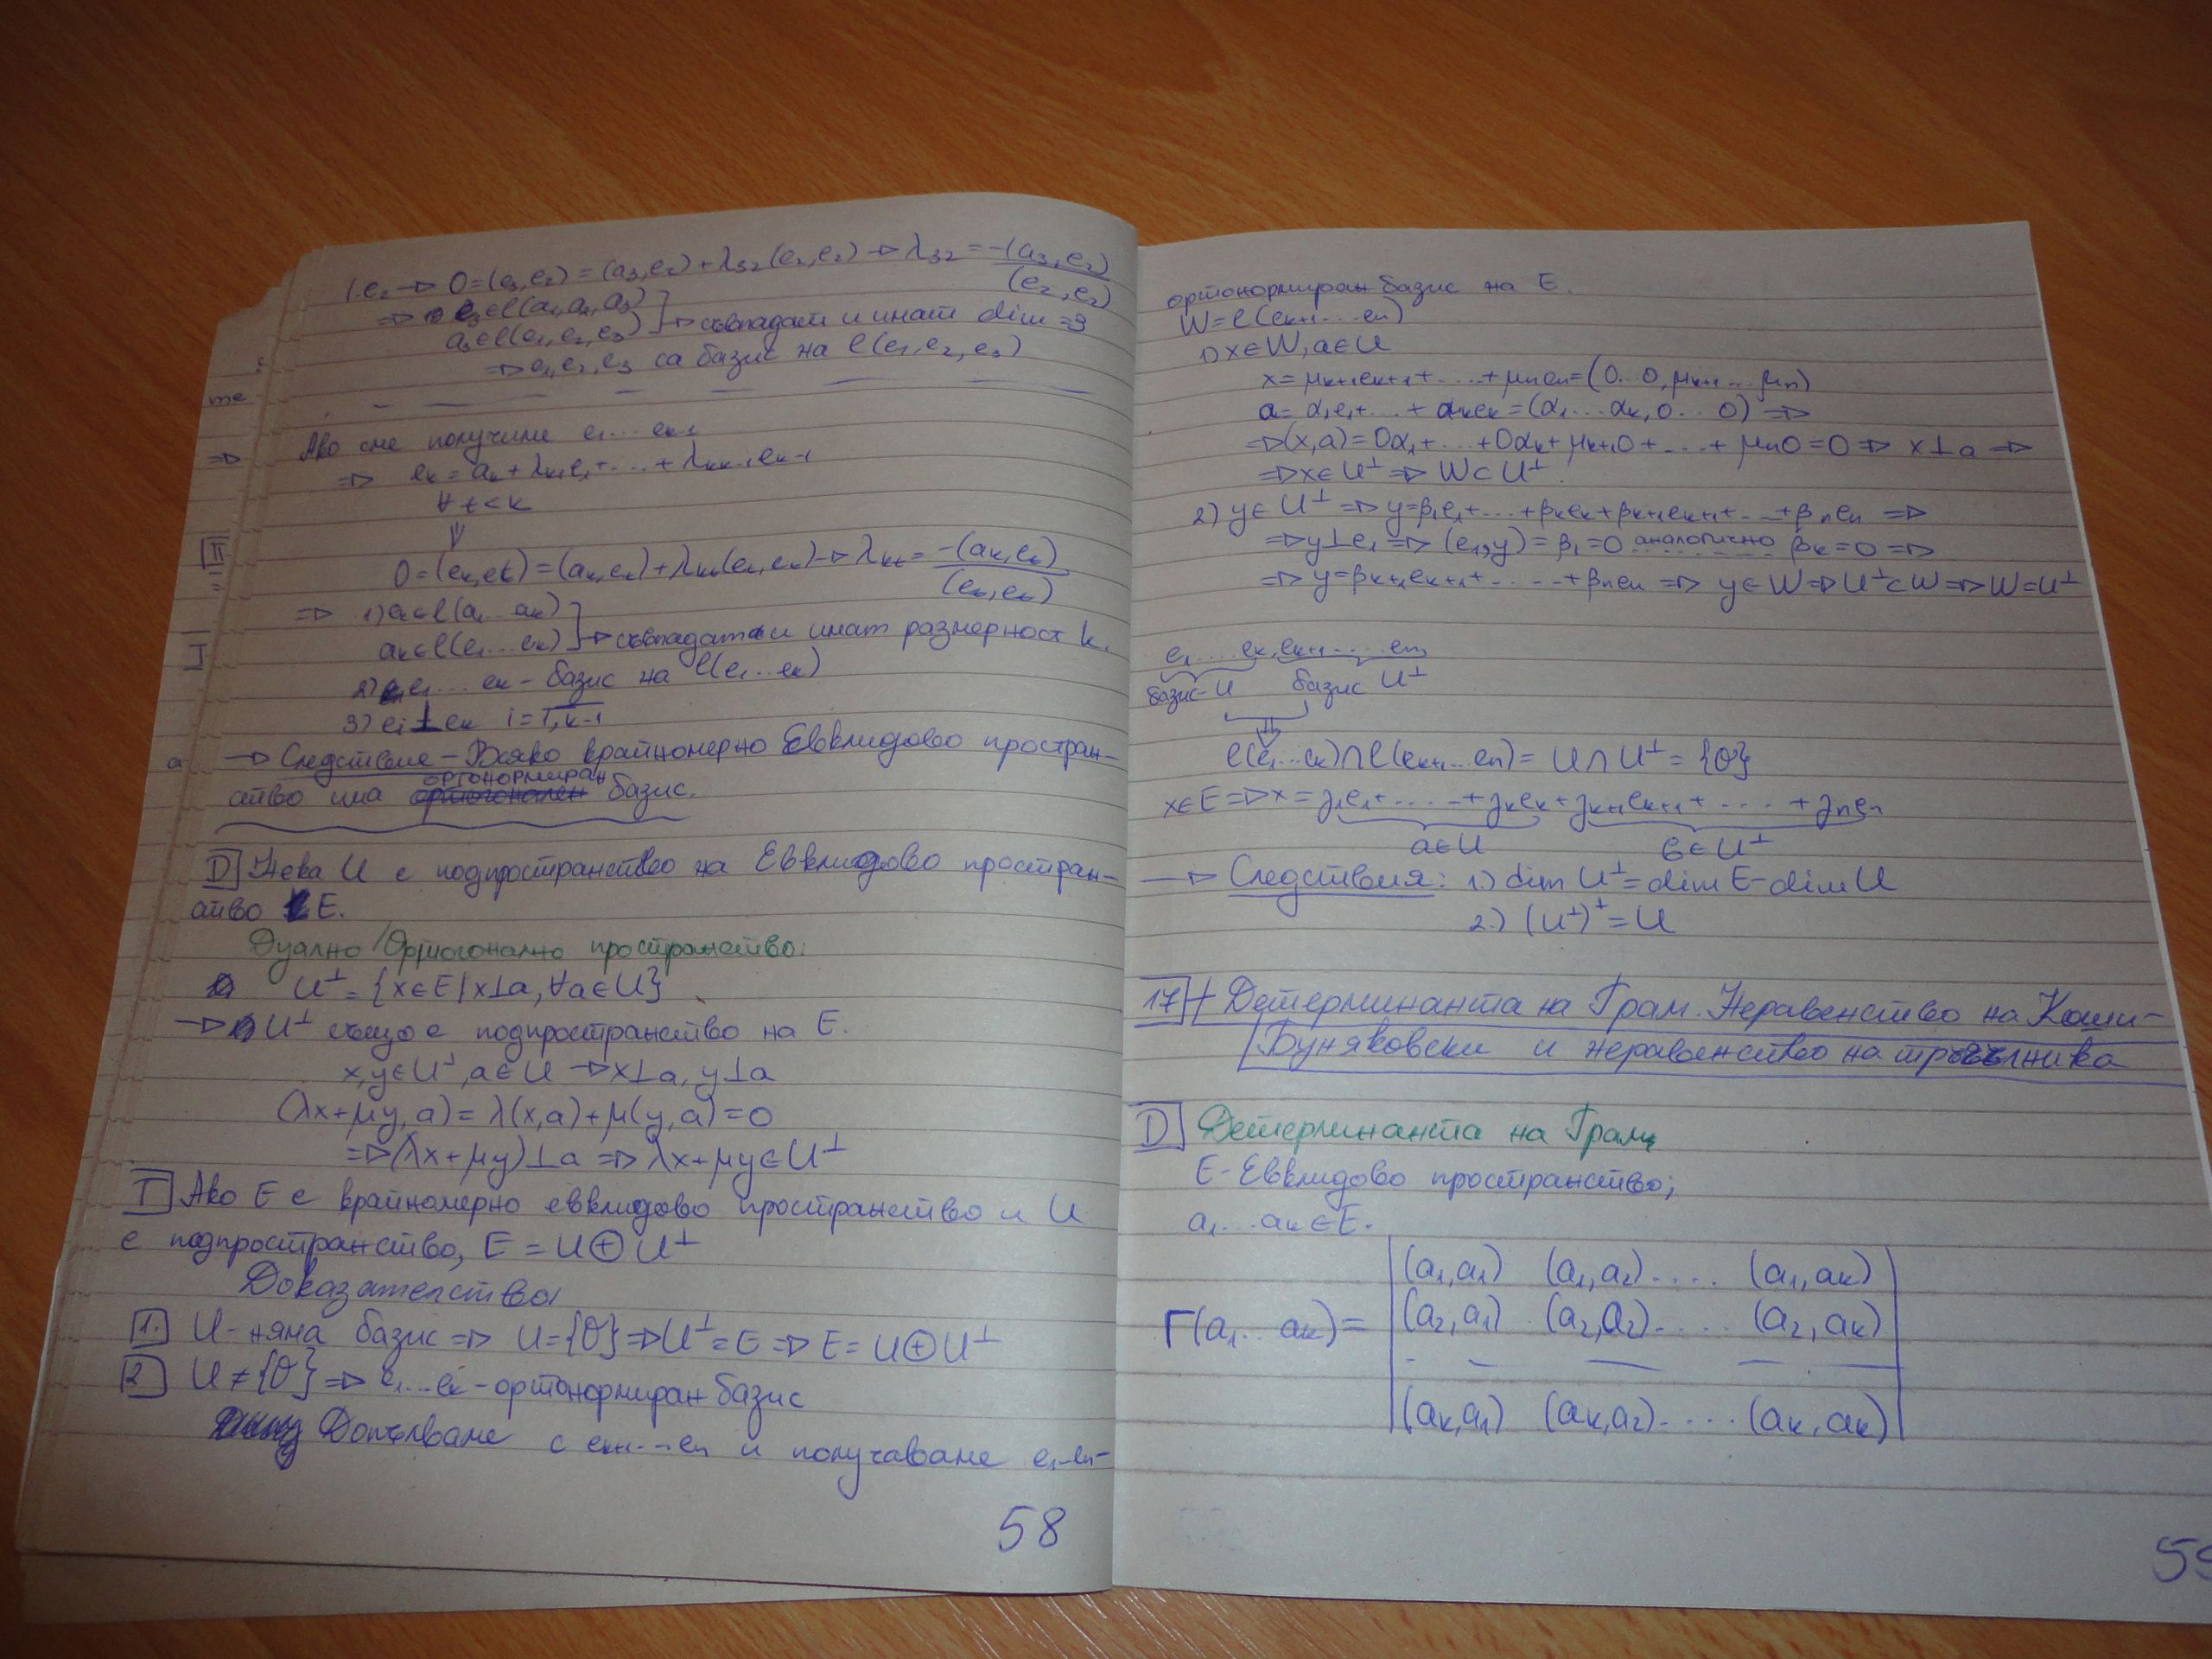 |.e₂ → 0=(e₃,e₂) = (a₃,e₂)+λ₃₂(e₂,e₂) → λ₃₂ = -(a₃,e₂)/(e₂,e₂)
⇒ e₃∈ℓ(a₁,a₂,a₃)
a₃∈ℓ(e₁,e₂,e₃) ] → съвпадат и имат dim = 3
⇒ e₁,e₂,e₃ са базис на ℓ(e₁,e₂,e₃)
Ако сме получили e₁...eₖ₋₁
⇒ eₖ = aₖ + λₖ₁e₁+...+ λₖₖ₋₁eₖ₋₁
∀ t<k
⇓
0=(eₖ,eₜ) = (aₖ,eₜ)+λₖₜ(eₜ,eₜ) → λₖₜ = -(aₖ,eₜ)/(eₜ,eₜ)
⇒ 1) eₖ∈ℓ(a₁...aₖ)
aₖ∈ℓ(e₁...eₖ) ] → съвпадат и имат размерност k.
2) e₁...eₖ - базис на ℓ(e₁...eₖ)
3) eᵢ⊥eₖ i=1,k-1
→ Следствие - Всяко крайномерно Евклидово простран-
ство има ортонормиран базис.
D Нека U е подпространство на Евклидово простран-
ство E.
Дуално/Ортогонално пространство:
U⊥ = {x∈E|x⊥a, ∀a∈U}
→ U⊥ също е подпространство на E.
x,y∈U⊥, a∈U → x⊥a, y⊥a
(λx+μy, a) = λ(x,a)+μ(y,a)=0
⇒ (λx+μy)⊥a ⇒ λx+μy∈U⊥
T Ако E е крайномерно евклидово пространство и U
е подпространство, E = U⊕U⊥
Доказателство:
1. U - няма базис ⇒ U={θ} ⇒ U⊥=E ⇒ E=U⊕U⊥
2 U≠{θ} ⇒ e₁...eₖ - ортонормиран базис
Допълваме с eₖ₊₁...eₙ и получаваме e₁...eₙ-
58
ортонормиран базис на E.
W=ℓ(eₖ₊₁...eₙ)
1) x∈W, a∈U
x=μₖ₊₁eₖ₊₁+....+μₙeₙ=(0...0,μₖ₊₁...μₙ)
a=α₁e₁+...+αₖeₖ=(α₁...αₖ,0...0) ⇒
⇒(x,a)=0α₁+...+0αₖ+μₖ₊₁0+...+μₙ0=0 ⇒ x⊥a ⇒
⇒x∈U⊥ ⇒ W⊂U⊥
2) y∈U⊥ ⇒ y=β₁e₁+...+βₖeₖ+βₖ₊₁eₖ₊₁+...+βₙeₙ ⇒
⇒y⊥e₁ ⇒ (e₁,y)=β₁=0 аналогично βₖ=0 ⇒
⇒ y=βₖ₊₁eₖ₊₁+.....+βₙeₙ ⇒ y∈W ⇒ U⊥⊂W ⇒ W=U⊥
e₁....eₖ,eₖ₊₁.....eₙ
базис-U базис U⊥
⇓
ℓ(e₁...eₖ)∩ℓ(eₖ₊₁...eₙ) = U∩U⊥ = {θ}
x∈E ⇒ x=γ₁e₁+.....+γₖeₖ+γₖ₊₁eₖ₊₁+....+γₙeₙ
a∈U b∈U⊥
→ Следствия: 1.) dim U⊥=dim E-dim U
2.) (U⊥)⊥=U
17 Детерминанта на Грам. Неравенство на Коши-
Буняковски и неравенство на триъгълника
D Детерминанта на Грам
E - Евклидово пространство;
a₁...aₖ∈E.
(a₁,a₁) (a₁,a₂)..... (a₁,aₖ)
Γ(a₁...aₖ)= (a₂,a₁) (a₂,a₂)..... (a₂,aₖ)
(aₖ,a₁) (aₖ,a₂)..... (aₖ,aₖ)